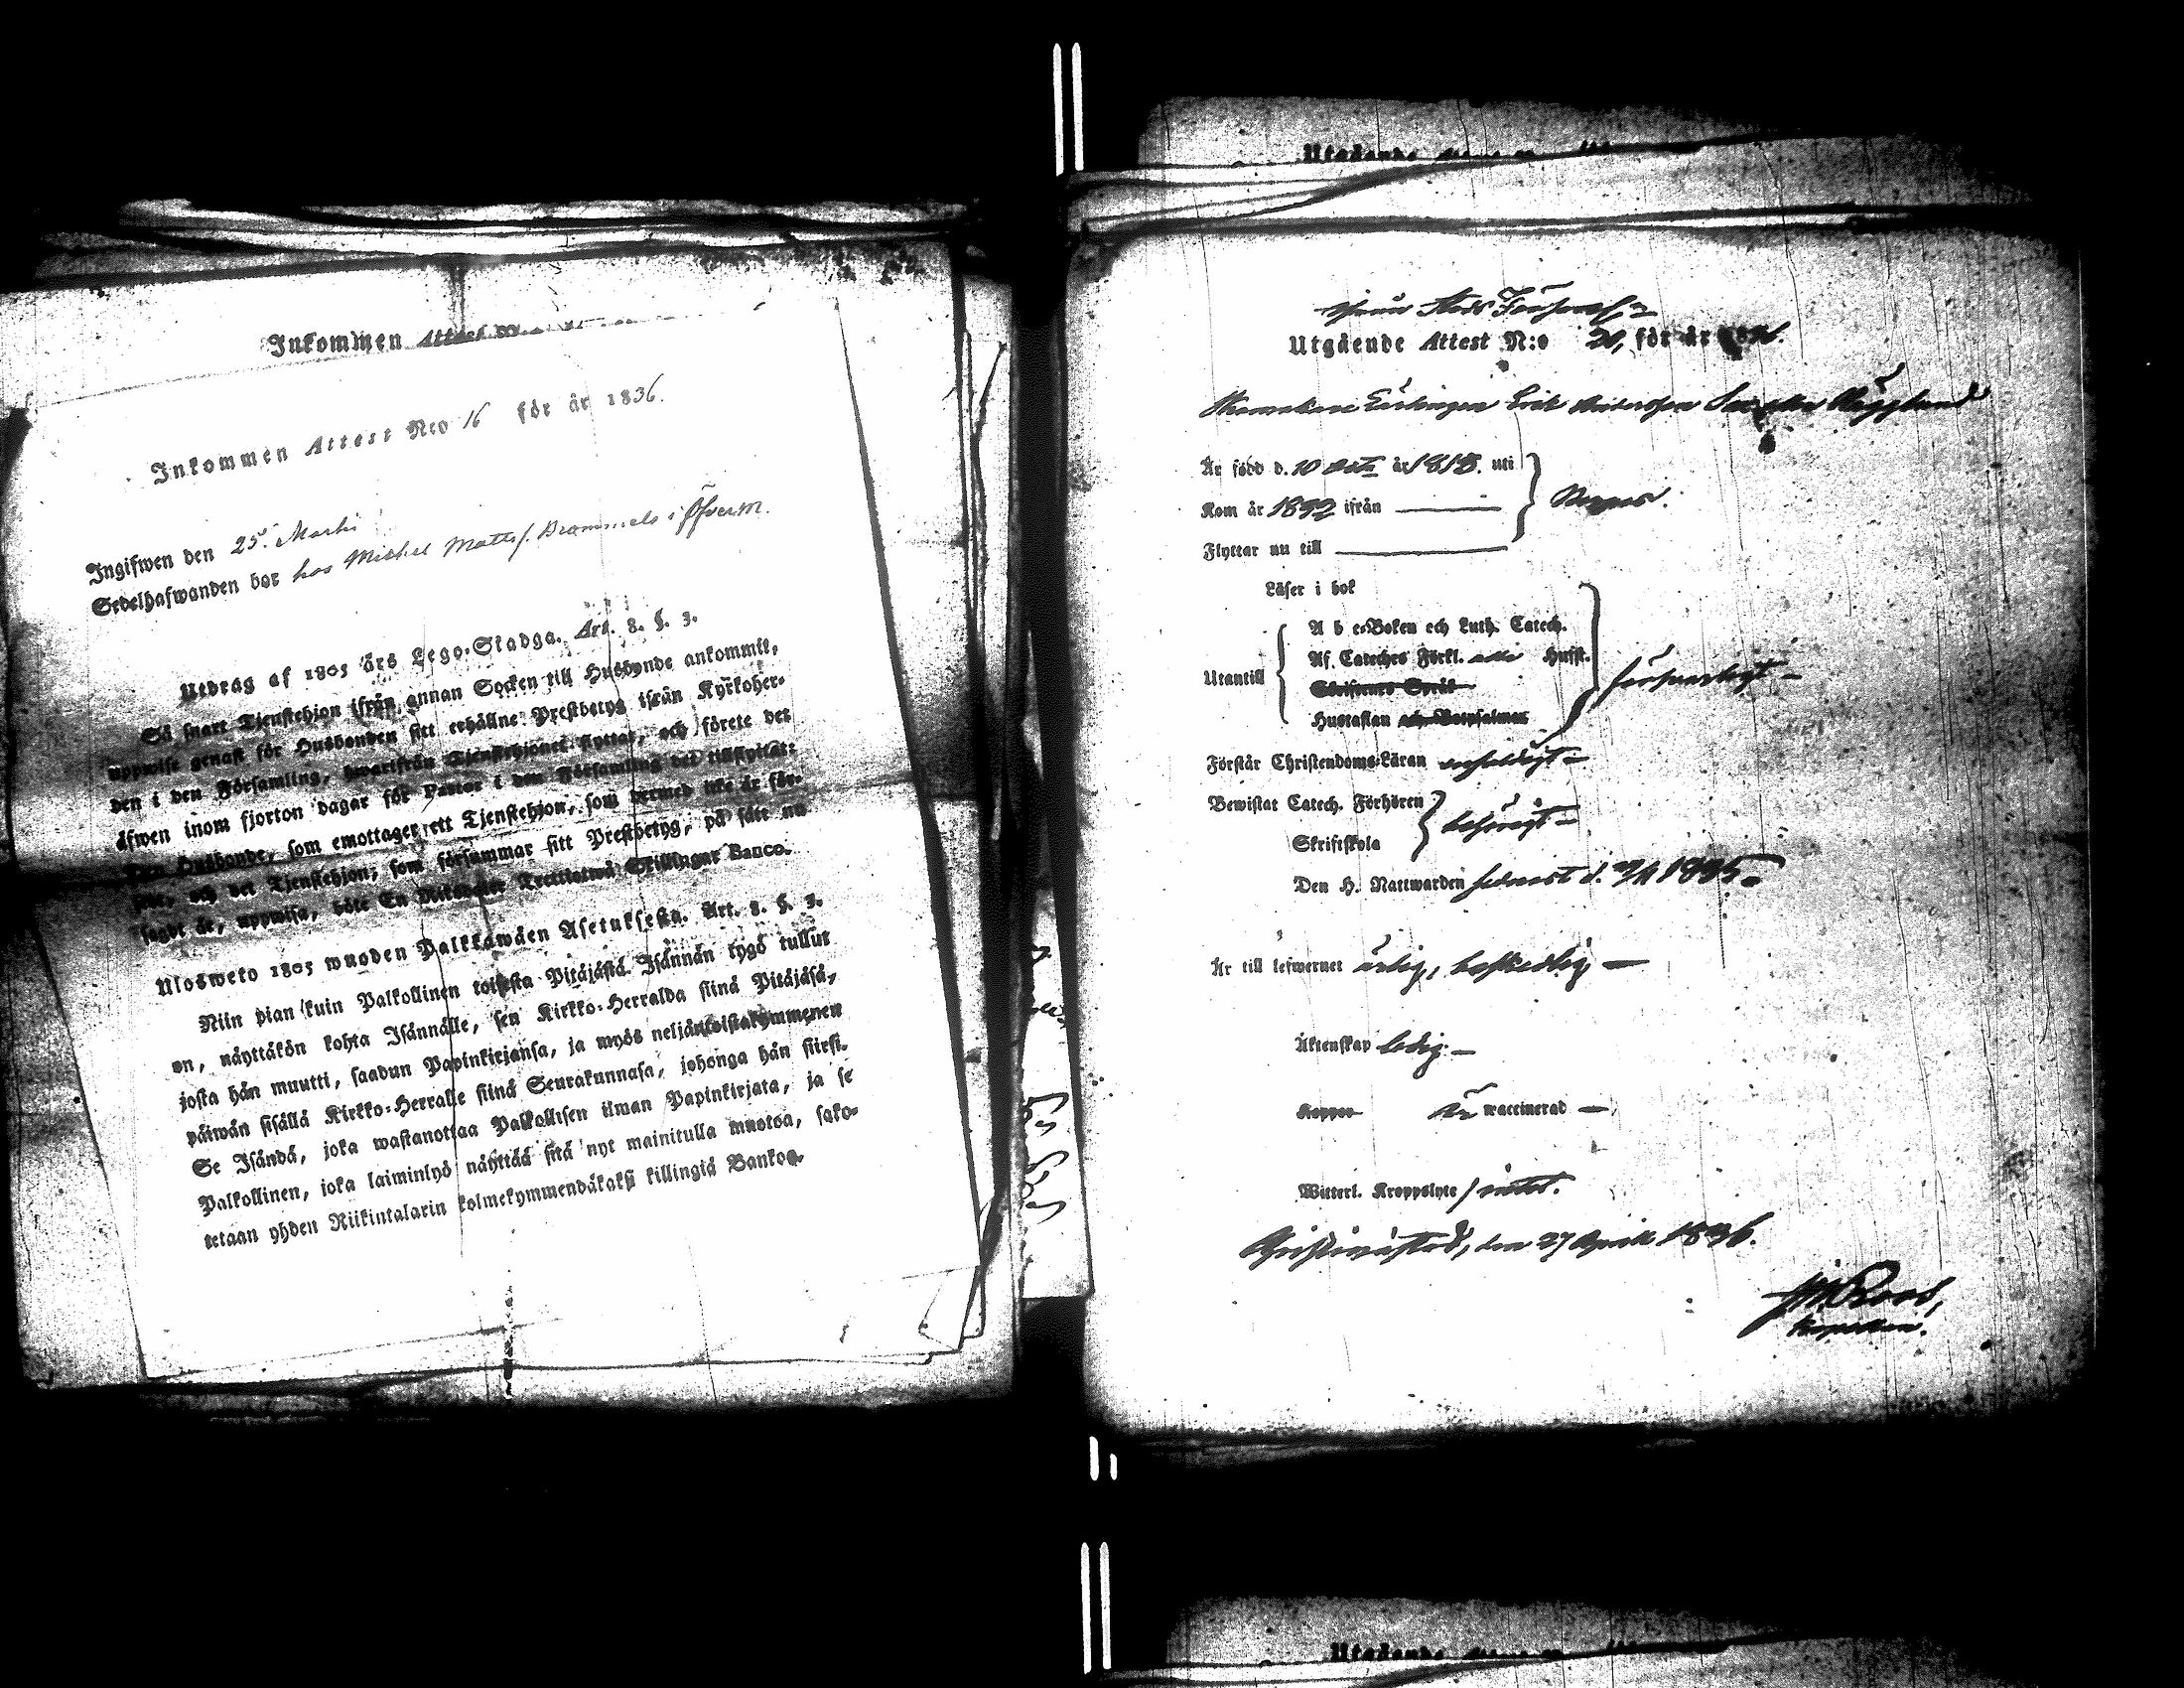 Inkommen Attest
Inkommen Attest N:o 16 för år 1836.
Ingifwen den 25. Martii
Sedelhafwanden bor hos Mickel Mattsf. Brommels i Öfverm.
Utdrag af 1805 års Lego-Stadga. Art. 8. §. 3.
Så snart Tjenstehjon ifrån annan Socken till Husbonde ankommit,
uppwise genast för Husbonden sitt erhållne Prestbetyg ifrån Kyrkoher-
den i den Församling, hwarifrån Tjenstehjonet flyttat, och förete det
äfwen inom fjorton dagar för Pastor i den Församling det tillflyttat:
Den Husbonde, som emottager ett Tjenstehjon, som dermed icke är för-
sedt, och det Tjenstehjon, som försummar sitt Prestbetyg, på sätt nu
sagdt är, uppwisa, böte En Riksdaler Trettiotwå Skillingar Banco.
Ulosweto 1805 wuoden Palkkawäen Asetuksesta. Art. 8. §. 3.
Niin pian kuin Palkollinen toisesta Pitäjästä Isännän tygö tullut
on, näyttäkön kohta Isännälle, sen Kirkko-Herralda siinä Pitäjäsä,
josta hän muutti, saadun Papinkirjansa, ja myös neljäntoistakymmenen
päiwän sisällä Kirkko-Herralle siinä Seurakunnasa, johonga hän siirsi.
Se Isändä, joka wastanottaa Palkollisen ilman Papinkirjata, ja se
Palkollinen, joka laiminlyö näyttää sitä nyt mainitulla muotoa, sako-
tetaan yhden Riikintalarin kolmekymmendäkaksi killingiä Bankoa.
Utgående Attest
Utgående Attest N:o 20, för år 1836.
Skomakare Lärlingen Erik Andersson Häggland
Är född d. 10 år 1818. uti
Kom år 1832 ifrån
Flyttar nu till
Läser i bok
A b c-Boken och Luth. Catech.
Af. Cateches Förkl. Husft.
Utantill
Skriftenes Språk
Hustaflan och Botpsalmer
försvarligt
Förstår Christendoms-Läran
Bewistat Catech. Förhören
Skriftskola
Den H. Nattwarden senast d. 1835
Är till lefwernet ärlig, beskedlig
Äktenskap ledig
Koppor är waccinerad
Witterl. Kroppslyte intet.
Christinæstad, den 27 Aprill 1836.
Roos,
Utgående